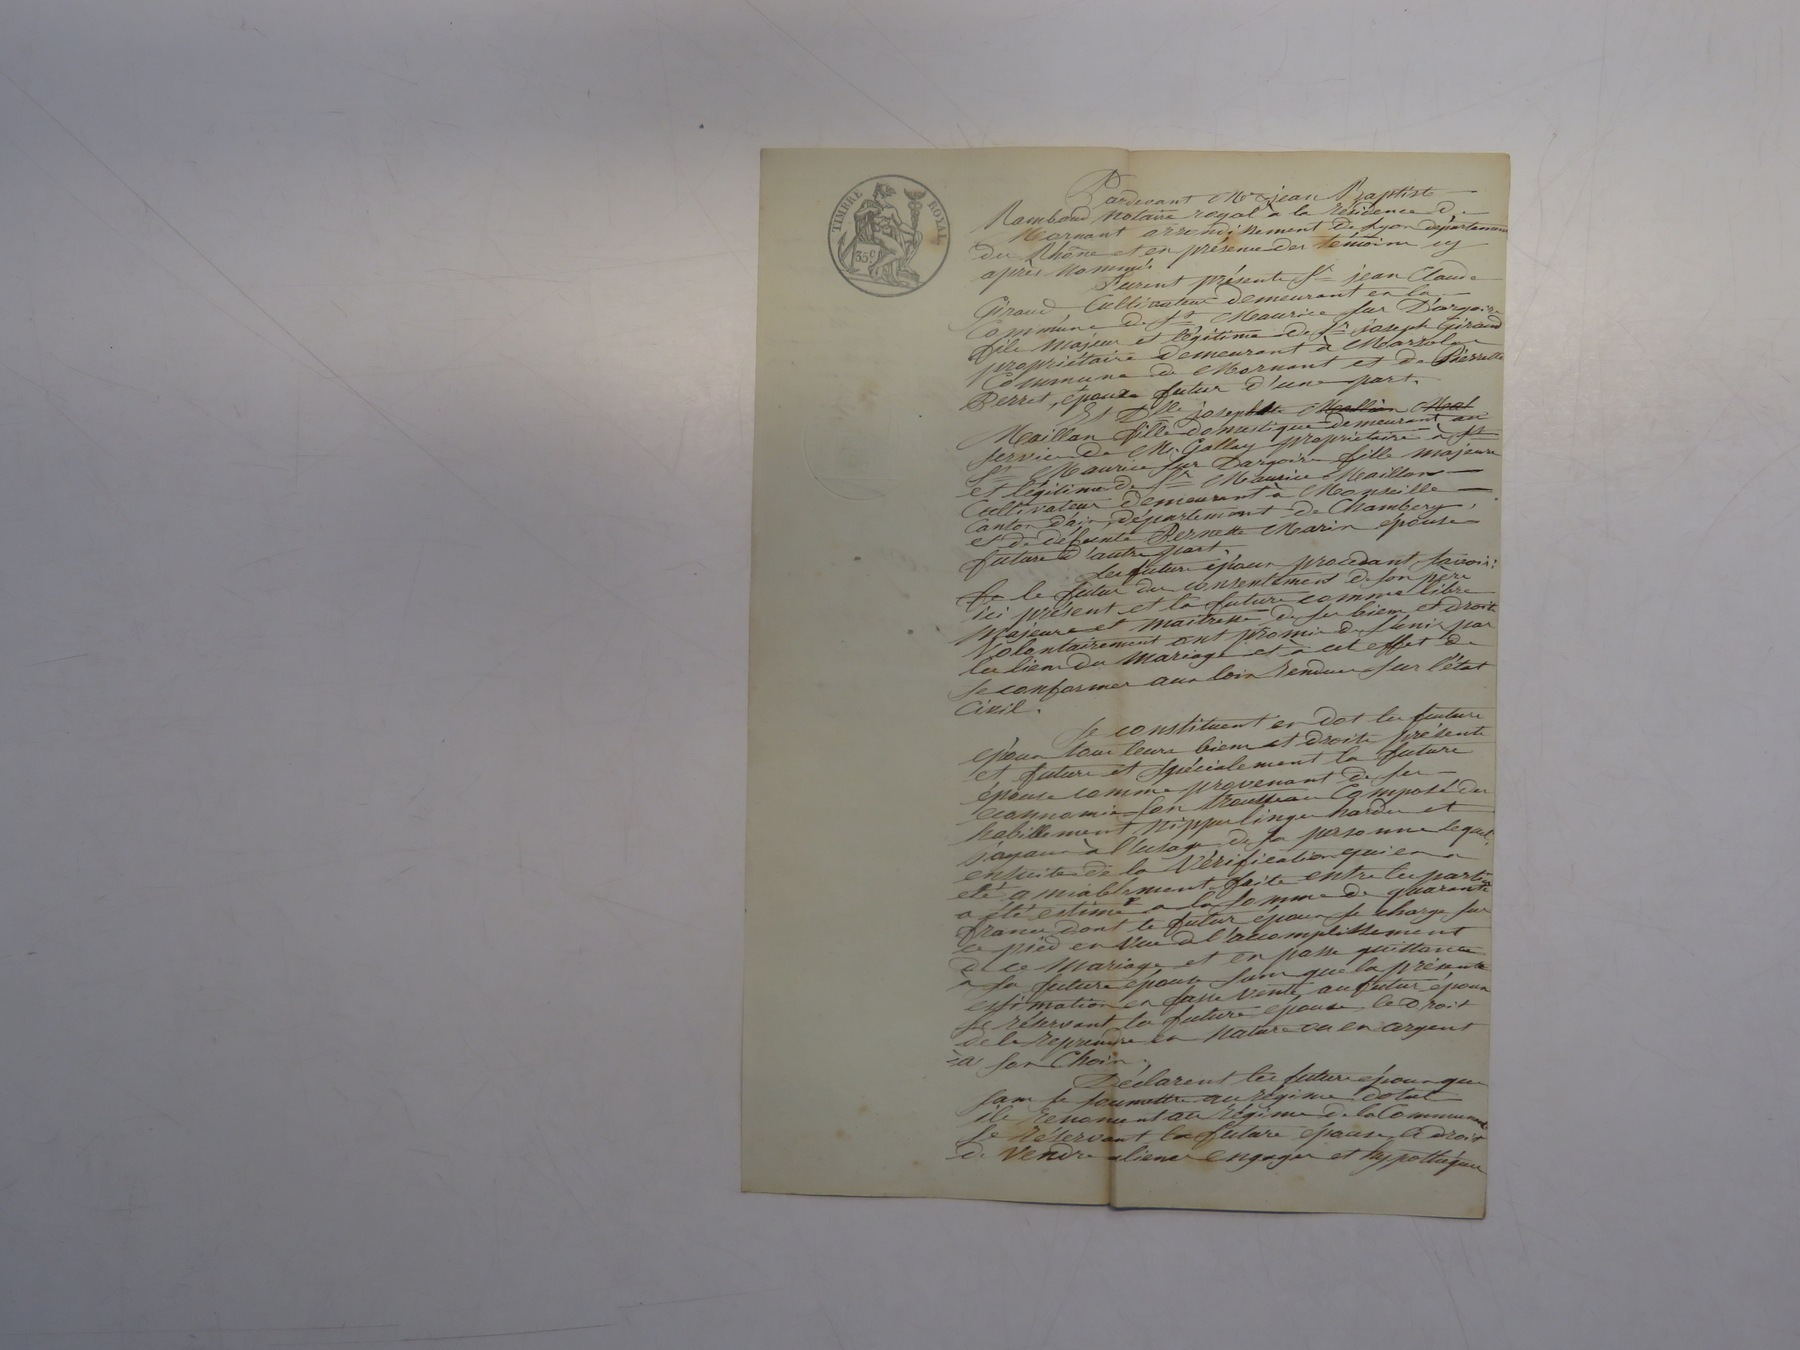 TIMBRE ROYAL
35c
Pardevant Me jean Baptiste
Rambaud Notaire royal à la résidence de
Mornant arrondissement de Lyon département
du Rhône et en présence des témoins cy
après nommés
furent présents Sr jean Claude
Giraud Cultivateur demeurant en la
Commune de St Maurice sur Dargoire
fils majeur et légitime de Sr joseph Giraud
propriétaire demeurant à
Commune de Mornant et de Pierrette
Perret, époux futur d'une part.
Et Dlle josephte
Maillan fille domestique demeurant au
service de M. Gallay propriétaire à St
St Maurice sur Dargoire fille majeure
et légitime de Sr Maurice Maillan
Cultivateur demeurant à
Canton département de Chambery,
et de défunte Pernette Marin épouse
future d'autre part.
Les futurs époux procédant, savoir:
le futur du consentement de son père
ici présent et la future comme libre
Majeure et maitresse de ses biens et droits
Volontairement ont promis de s'unir par
les liens du mariage et à cet effet de
se conformer aux loix rendues sur l'état
Civil.
Se constituent en dot les futurs
époux tous leurs biens et droits présents
et futurs et spécialement la future
épouse comme provenant de ses
économies son trousseau Composé des
habillements nippes linges hardes et
joyaux à l'usage de sa personne lequel,
ensuite de la Vérification qui en a
été amiablement faite entre les parties
a été estimé a la somme de quarante
francs dont le futur époux se charge sur
ce pied en vue de l'accomplissement
de ce mariage et en passe quittance
à sa future épouse sans que la présente
estimation en fasse vente au futur époux
se réservant la future épouse le droit
de le reprendre en nature ou en argent
à son Choix.
Déclarent les futurs époux que
sans se soumettre au régime dotal
ils renoncent au régime de la Communauté
se réservant la future épouse le droit
de Vendre aliener engager et hypothéquer